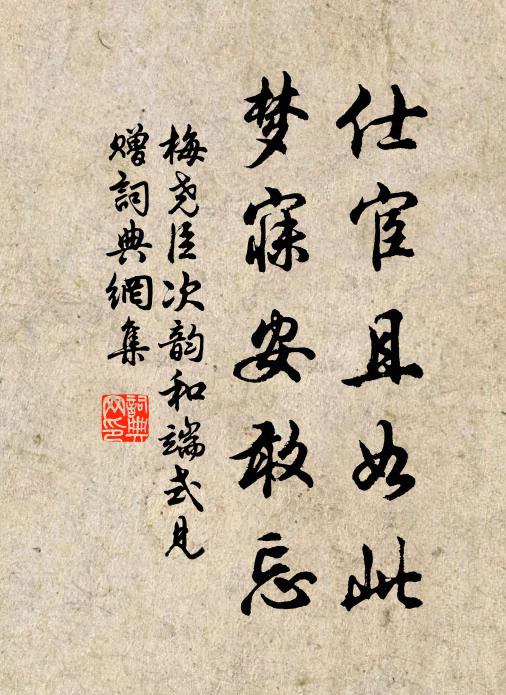 仕宦且如此
梦寐安敢忘
梅尧臣次韵和端式见
赠詞典網集
詞典
网印